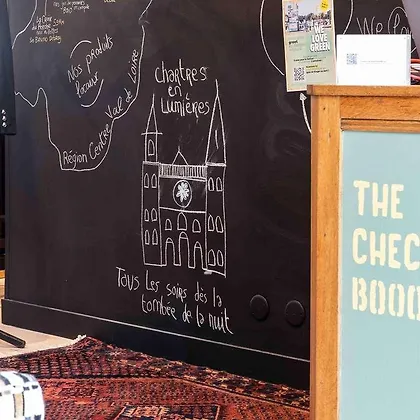 Nos produits
locaux
Région Centre Val de Loire
Chartres
en
Lumières
Tous les soirs dès la
tombée de la nuit
WE
LOVE
GREEN
We lo
THE
CHEC
BOOO